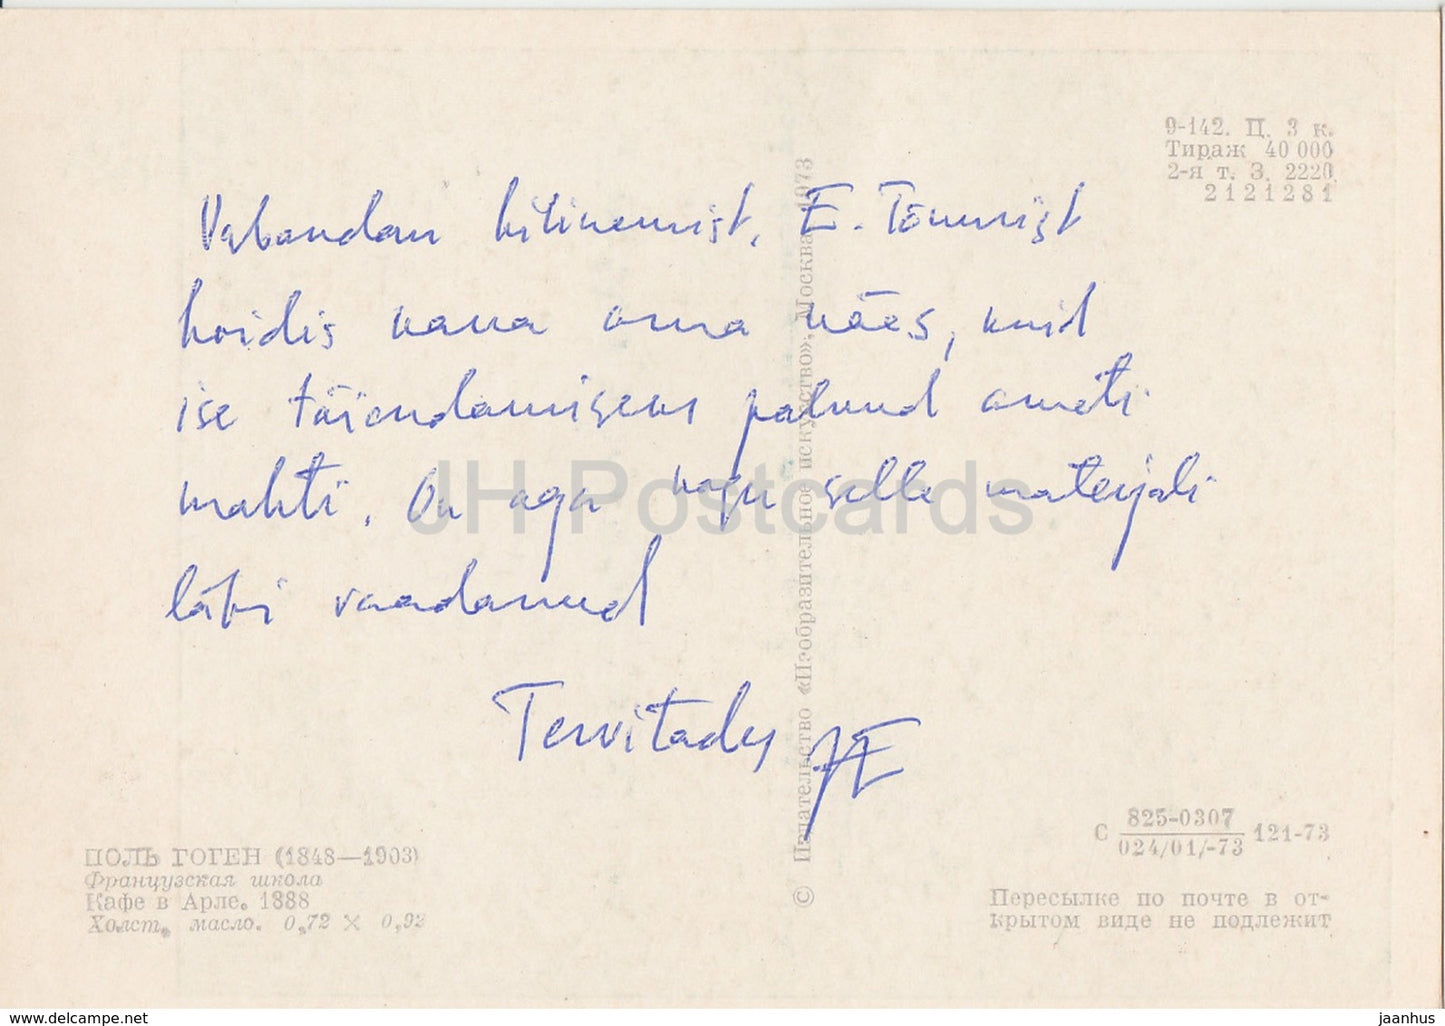 9-142. Ц. 3 к.
Тираж 40 000
2-я т. З. 2220
2121281
Vabandan hilinemist. E. Tõnnist
hoidis kaua oma käes, kuid
ise täiendamisens palunud ameti
mahti. On aga kogu selle materjali
läbi vaadanud
Tervitades
JE
JH Postcards
© Издательство «Изобразительное искусство», Москва, 1973
ПОЛЬ ГОГЕН (1848—1903)
Французская школа
Кафе в Арле. 1888
Холст, масло. 0,72 × 0,92
С 825-0307 121-73
024/01/-73
Пересылке по почте в от-
крытом виде не подлежит
www.delcampe.net
jaanhus